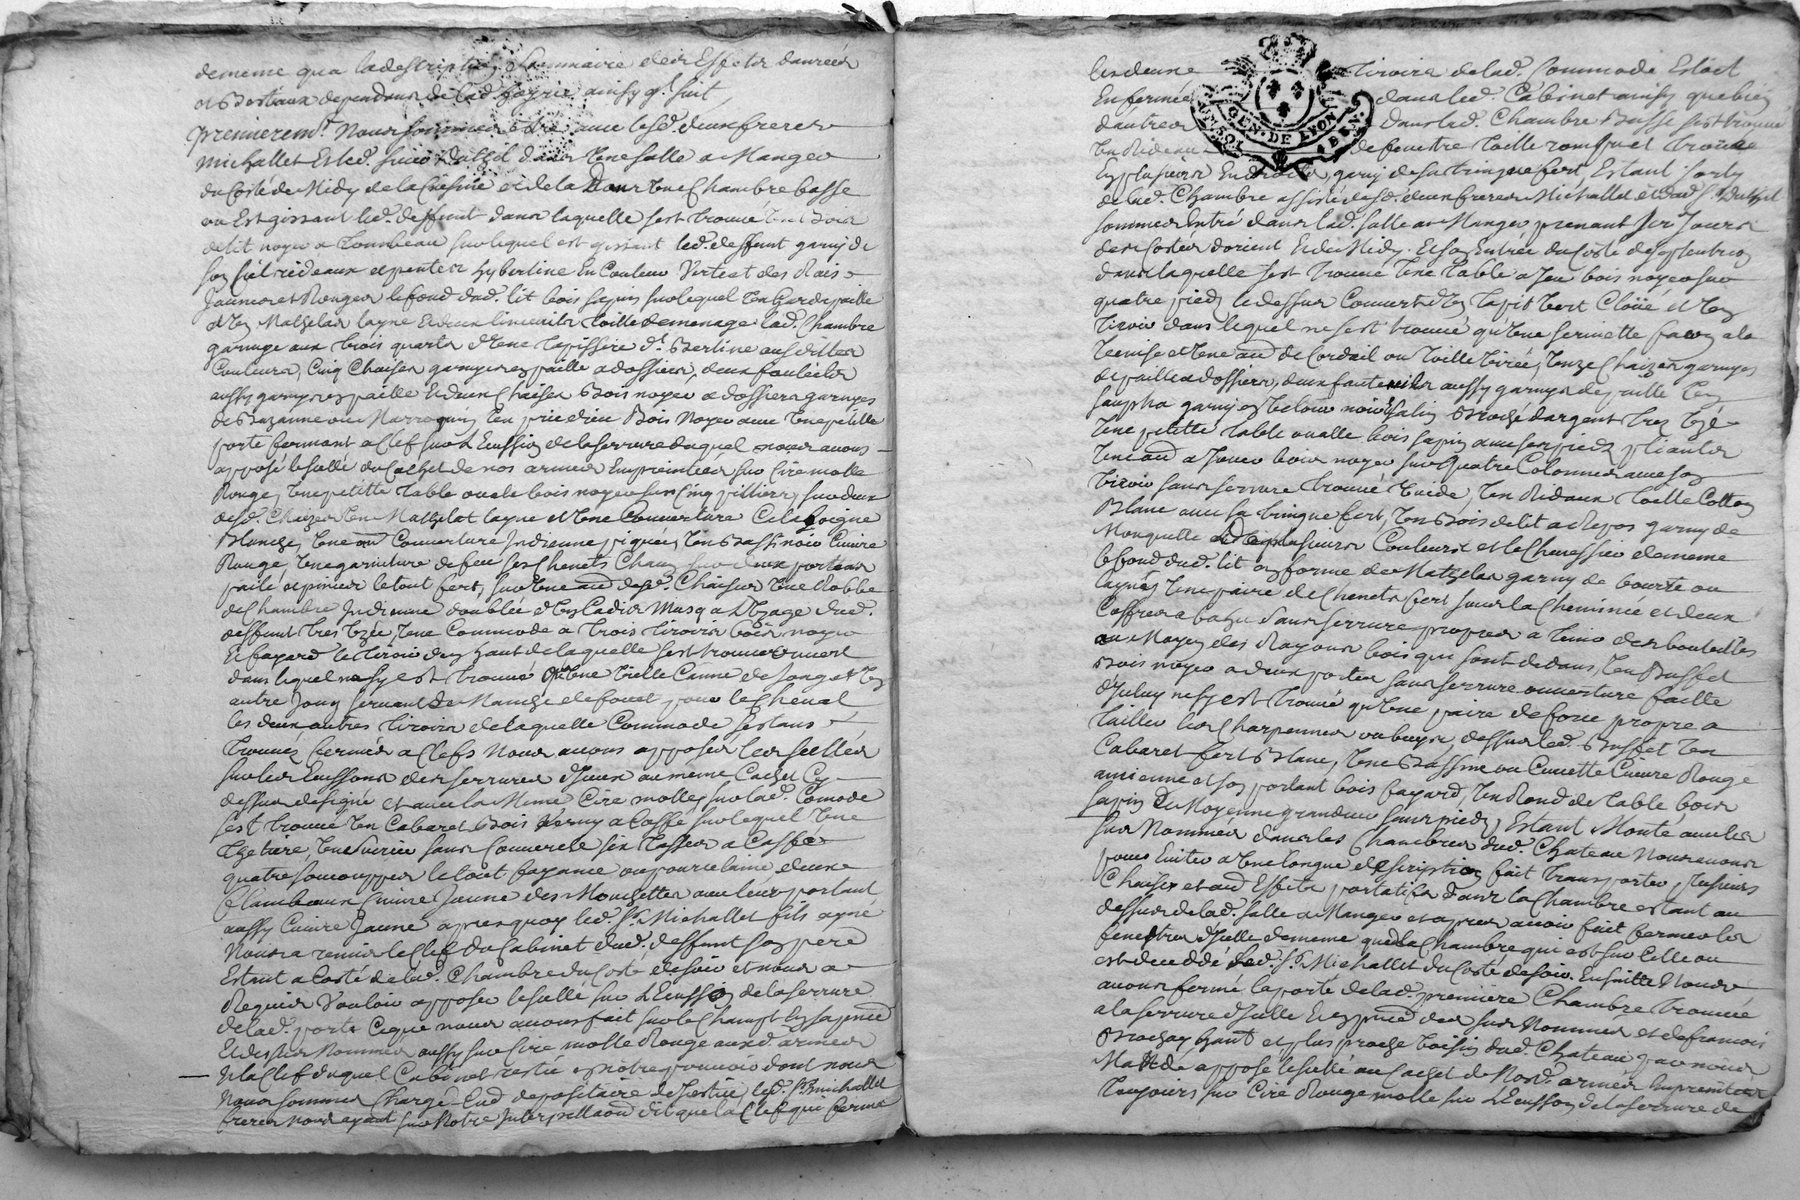 de meme qua la description Sommaire des Effets danrées
et Bestiaux dependans de lad. ainsy q. suit
premierem.t Nous sommes avec lesd. deux freres
Michallet Et led. sieur dans Une salle a Manger
du Costé de Midy de la Cuisine et de la dans Une Chambre basse
ou Est gissant led. deffunt dans laquelle sest trouvé Un bois
de lit noyer a Tombeau sur lequel est gissant led. deffunt garny de
son Ciel rideaux et pentes En Couleur Verte et des Rais
Jaunes et Rouges le fond dud. lit bois sapin sur lequel Un garde paille
et Un Mathelas layne Et deux linceuils toille de menage lad. Chambre
garnye aux trois quarts d'Une Tapisserie d. Berline ausdittes
Couleurs, Cinq Chaises garnyes paille a dossier, deux fauteuils
aussy garnyes paille Et deux Chaises Bois noyer a dossiers garnyes
de Bazanne ou Marroquin Un prie dieu Bois Noyer avec Une petitte
porte fermant a Clef sur L'Ecusson de la serrure duquel nous avons
apposé le sçellé du Cachet de nos armes Empreintes sur Cire molle
Rouge, Une petitte table ovale bois noyer sur Cinq pilliers, sur deux
desd. Chaizes Un Mathelat layne et Une Couverture Catalogne
Blanche, Une au.t Couverture Indienne piquée, Un Bassinoir Cuivre
Rouge, Une garniture de feu ses Chenets
paile et pincer le tout fert, sur Une au.t desd. Chaises Une Robbe
de Chambre Indienne doublée d'Un Cadis Musq a L'Uzage dud.
deffunt tres Uzée, Une Commode a trois tiroirs bois noyer
Et fayard le tiroir d'en haut de laquelle sest trouvé ouvert
dans lequel ne sy est trouvé qu'Une Vielle Canne de Jong et Un
autre Jong servant de Manche de fouet pour le Cheval
les deux autres tiroirs de laquelle Commode s'estans
trouvés fermés a Clefs Nous avons apposés les scellés
sur les Ecussons des serrures d'Iceux au meme Cachet Cy
dessus designé et avec la Meme Cire molle, sur lad. Comode
sest trouvé Un Cabaret Bois Verny a Caffé sur lequel Une
Theitiere, Un sucrier sans Couvercle six tasses a Caffé
quatre soucouppes le tout fayance ou pourcelaine deux
flambeaux Cuivre Jaune des Mouchettes avec leur portant
aussy Cuivre Jaune apres quoy led. S.r Michallet fils ayné
Nous a remis le Clef du Cabinet dud. deffunt son pere
Estant a Costé de lad. Chambre du Costé de soir et nous a
Requis Vouloir apposer le scellé sur L'Ecusson de la serrure
de lad. porte Ceque nous avons fait sur le Champt En sa pnce
Et des sus Nommés aussy sur Cire molle Rouge auxd. armes
Et la Clef duquel Cabinet restée En notre pouvoir dont nous
Nous sommes Chargé Aud. depositaire de Justice, led. S.r Michallet
freres nous ayant sur Notre Interpellaon dit que la Clef qui ferme
les deux tiroirs de lad. Commode Estoit
Enfermée dans led. Cabinet ainsy que bien
dautres dans led. Chambre Basse sest trouvé
Un Rideau de fenestre toille roussy et trouée
En plusieurs Endroits garny de sa tringue fert, Estant sortis
de lad. Chambre assisté desd. deux freres Michallet et dud. S.r
sommes Entré dans lad. salle a Manger prenant ses Jours
des Costés d'orient Et de Midy. Et son Entrée du Costé de septentrion
dans laquelle sest trouvé Une Table a Jeu bois noyer sur
quatre pieds le dessus Couvert d'Un tapis Vert Cloüé et Un
tiroir dans lequel ne sest trouvé qu'Une serviette façon a la
Venise et Une au.t de Cordail ou toille tirée, Unze Chaizes garnyes
de paille a dossiers, deux fauteuils aussy garnyes de paille Un
saupha garny En Velour noir salin Broché d'argent tres Uzé
Une petitte table ovalle bois sapin avec ses pieds pliantes
Une au.t a Jouer bois noyer sur Quatre Colonnes avec son
tiroir sans serrure trouvé Vuide, Un Rideaux toille Cotton
Blanc avec sa tringue fert, Un Bois de lit a Repos garny de
Mouquette de plusieurs Couleurs et le Chevessier de meme
le fond dud. lit En forme de Mathelas garny de bourre ou
layne, Une paire de Chenets fert sous la Cheminée et deux
Coffres a bahu sans serrure propres a tenir des bouteilles
au Moyen des Rayons bois qui sont dedans, Un Buffet
Bois noyer a deux portes sans serrure ouverture faitte
d'Iceluy ne sy est trouvé qu'Une paire de force propre a
tailler les Charpennes ou buys, dessus led. Buffet Un
Cabaret fert Blanc, Une Bassine ou Cuvette Cuivre Rouge
ancienne et son portant bois fayard, Un Rond de table bois
sapin De Moyenne grandeur sans pieds, Estant Monté avec les
sus Nommés dans les Chambres dud. Chateau Nous avons
pour Eviter a Une longue description fait transporter plusieurs
Chaises et au.t Effets portatifs dans la Chambre estant au
dessus de lad. salle a Manger et apres avoir fait fermer les
fenestres d'Icelle de meme que de la Chambre qui est sur Celle ou
est decedé led. S.r Michallet du Costé de soir. Ensuitte Nous
avons fermé la porte de lad. premiere Chambre trouvée
a la serrure d'Icelle En pnce des sus Nommés et de francois
Brochay hant et plus proche Voisin dud. Chateau que nous
apposé le scellé au Cachet de Nosd. armes Empreintes
Toujours sur Cire Rouge molle sur L'Ecusson de la serrure de
GEN. DE LYON